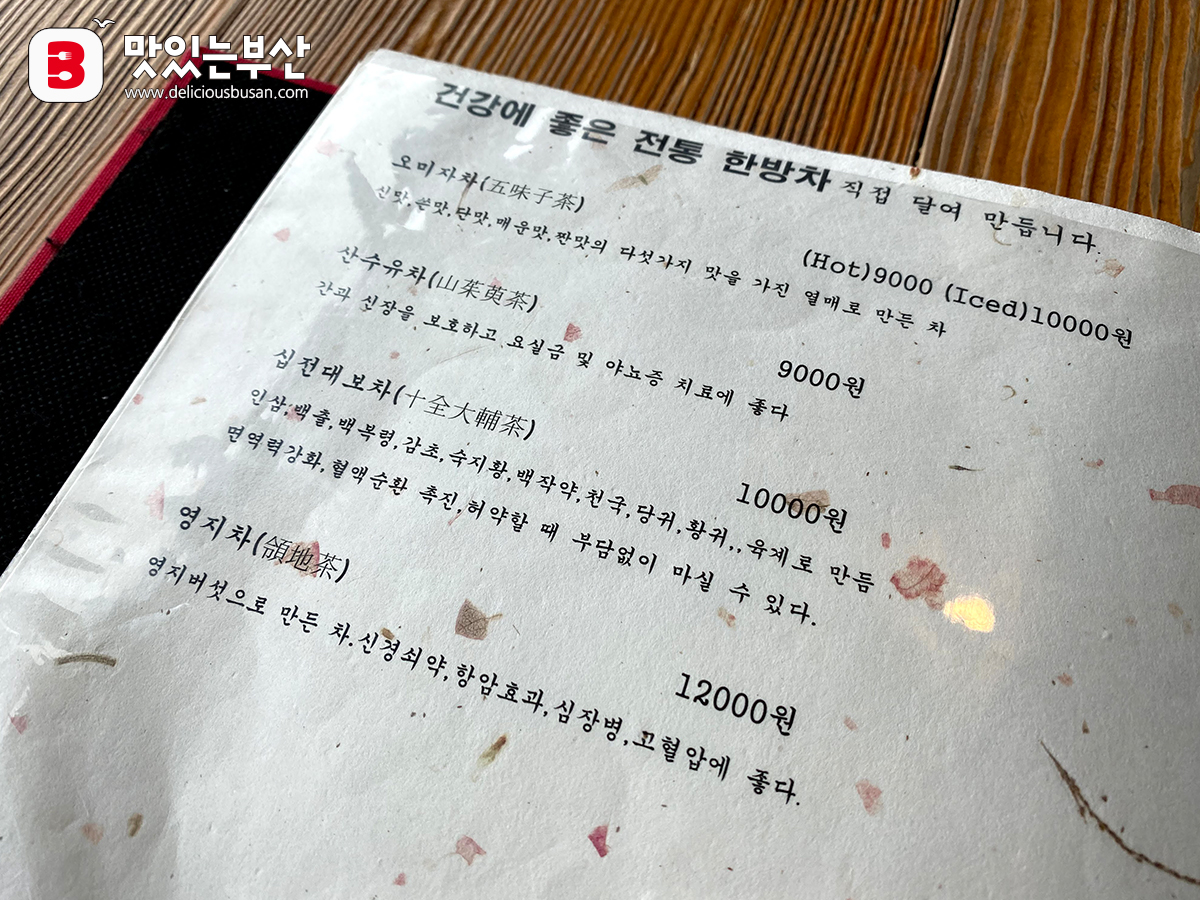 B 맛있는부산
www.deliciousbusan.com
건강에 좋은 전통 한방차 직접 달여 만듭니다.
오미자차(五味子茶) (Hot)9000 (Iced)10000원
신맛,쓴맛,단맛,매운맛,짠맛의 다섯가지 맛을 가진 열매로 만든 차
산수유차(山茱萸茶) 9000원
간과 신장을 보호하고 요실금 및 야뇨증 치료에 좋다
십전대보차(十全大輔茶) 10000원
인삼,백출,백복령,감초,숙지황,백작약,천국,당귀,황귀,,육계로 만듬
면역력강화,혈액순환 촉진,허약할 때 부담없이 마실 수 있다.
영지차(領地茶) 12000원
영지버섯으로 만든 차.신경쇠약,항암효과,심장병,고혈압에 좋다.